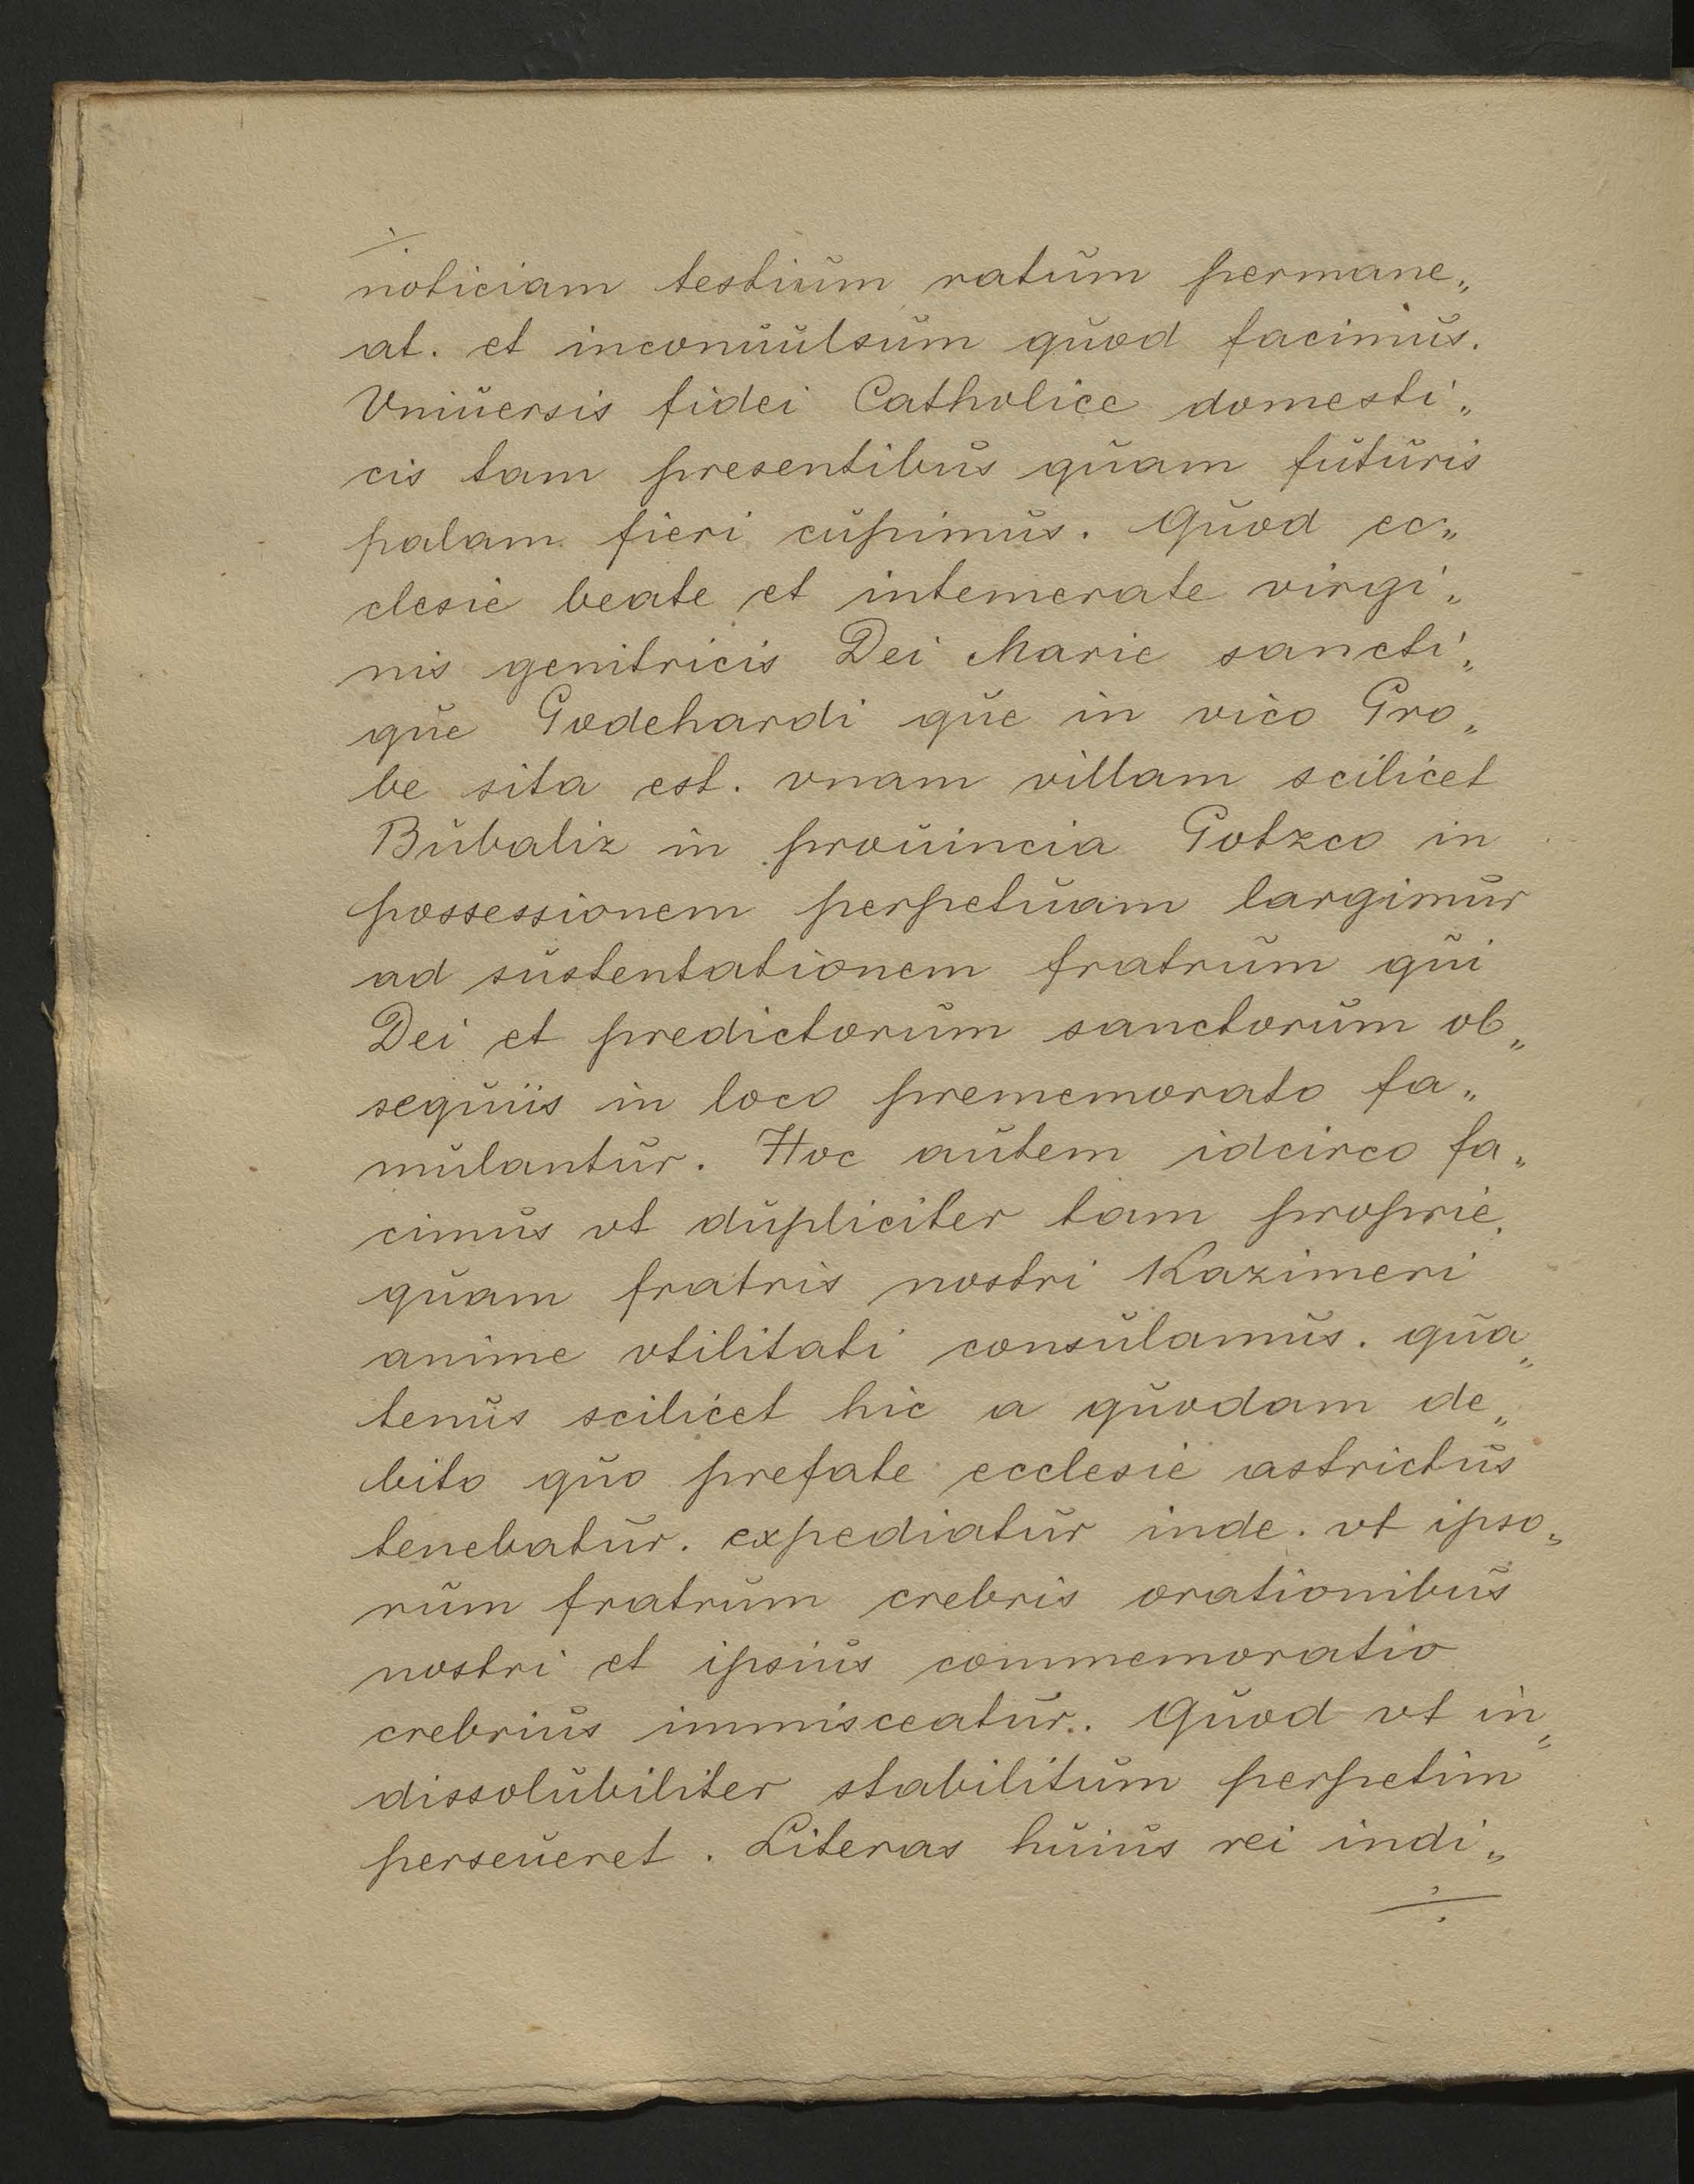 ÷
noticiam testium ratum permane„
at. et inconuulsum quod facimus.
Vniuersis fidei Catholice domesti„
cis tam presentibus quam futuris
palam fieri cupimus. Quod ec„
clesie beate et intemerate virgi„
nis genitricis Dei Marie sancti„
que Godehardi que in vico Gro„
be sita est. vnam villam scilicet
Bubaliz in prouincia Gotzco in
possessionem perpetuam largimur
ad sustentationem fratrum qui
Dei et predictorum sanctorum ob„
sequiis in loco prememorato fa„
mulantur. Hoc autem idcirco fa„
cimus vt dupliciter tam proprie.
quam fratris nostri Kazimeri
anime vtilitati consulamus. qua„
tenus scilicet hic a quodam de„
bito quo prefate ecclesie astrictus
tenebatur. expediatur inde. vt ipso„
rum fratrum crebris orationibus
nostri et ipsius commemoratio
crebrius immisceatur. Quod vt in„
dissolubiliter stabilitum perpetim
perseueret. Literas huius rei indi„
÷